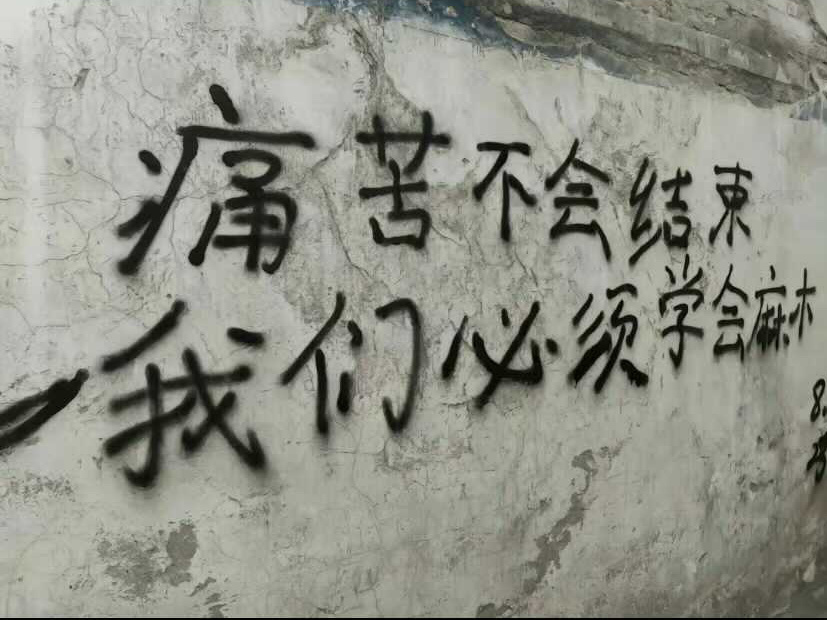 痛苦不会结束
我们必须学会麻木